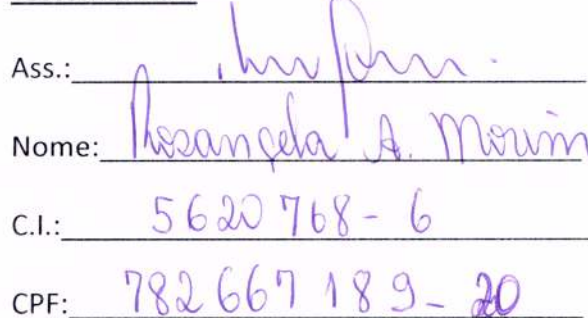 Ass.:
Nome: Rosangela A. Morim
C.I.: 5620768-6
CPF: 782667189-20